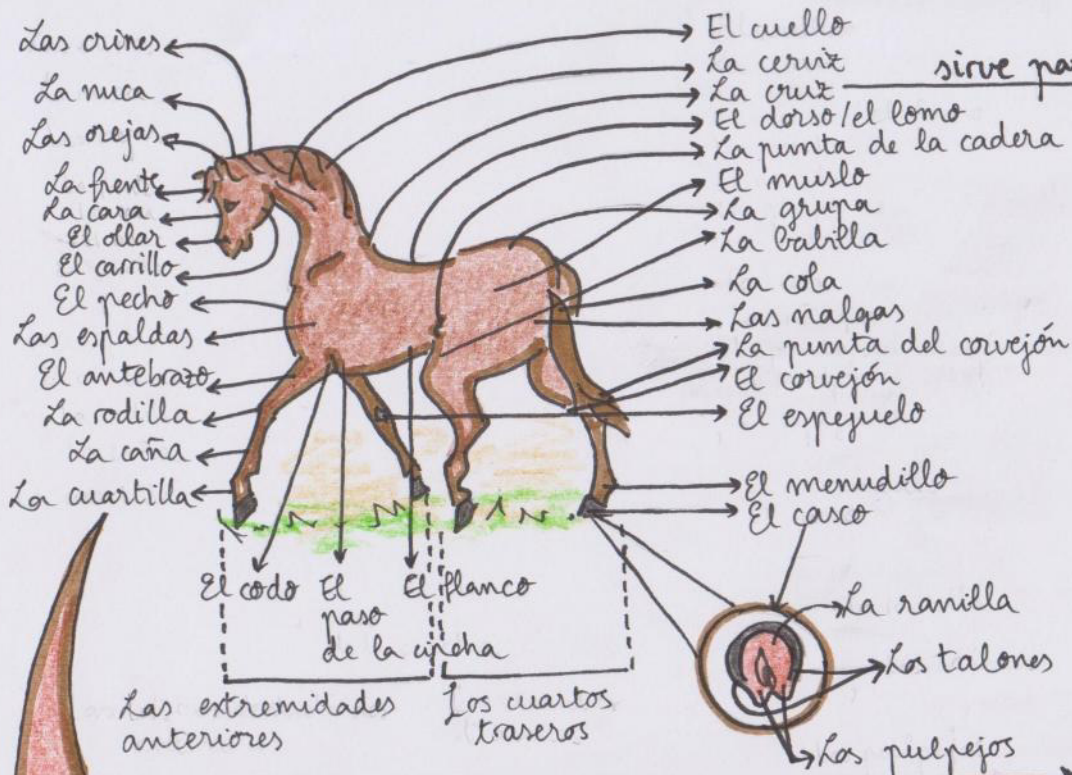 Las crines
La nuca
Las orejas
La frente
La cara
El ollar
El carrillo
El pecho
Las espaldas
El antebrazo
La rodilla
La caña
La cuartilla
El cuello
La cerviz
La cruz
sirve
El dorso/el lomo
La punta de la cadera
El muslo
La grupa
La babilla
La cola
Las nalgas
La punta del corvejón
El corvejón
El espejuelo
El menudillo
El casco
El codo
El
paso
de la cincha
El flanco
Las extremidades
anteriores
Los cuartos
traseros
La ranilla
Los talones
Los pulpejos